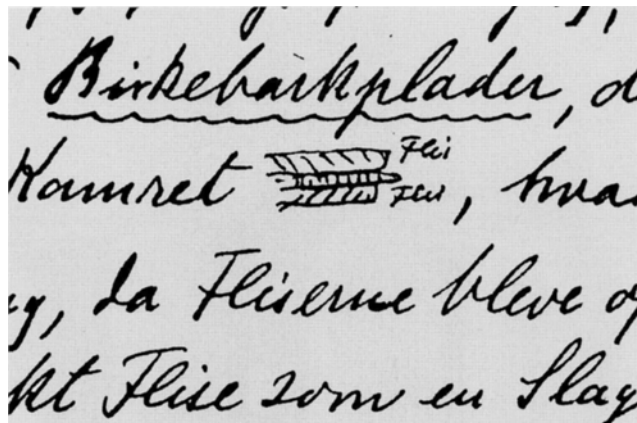 Birkebarkplader, d
Kamret Flis
Flis, hva
ay, da Fliserne bleve o
kt Flise som en Slag